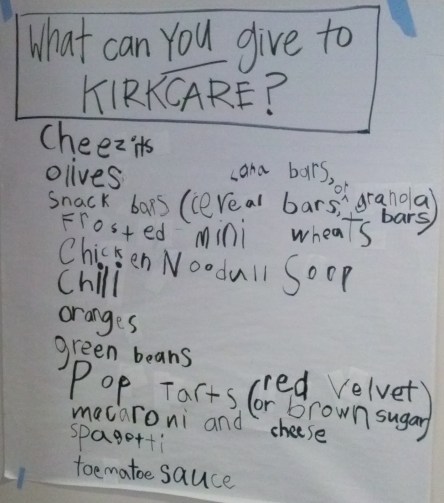 What can YOU give to
KIRKCARE?
Cheez its
olives
Luna bars,
Snack bars (cereal bars, or granola bars)
Frosted mini wheats
Chicken Noodull Soop
Chili
oranges
green beans
Pop Tarts (red velvet)
(or brown sugar)
macaroni and cheese
spagotti
toematoe sauce